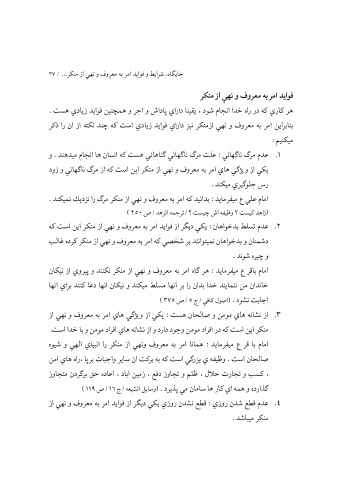 جايگاه، شرايط و فوايد امر به معروف و نهي از منكر... / ٣٧
فوايد امر به معروف و نهي از منكر
هر كاري كه در راه خدا انجام شود ، يقينا داراي پاداش و اجر و همچنين فوايد زيادي هست .
بنابراين امر به معروف و نهي ازمنكر نيز داراي فوايد زيادي است كه چند نكته از ان را ذكر
ميكنيم :
١. عدم مرگ ناگهاني : علت مرگ ناگهاني گناهاني هست كه انسان ها انجام ميدهند . و
يكي از ويژگي هاي امر به معروف و نهي از منكر اين است كه از مرگ ناگهاني و زود
رس جلوگيري ميكند .
امام علي ع ميفرمايد : بدانيد كه امر به معروف و نهي از منكر مرگ را نزديك نميكند .
(زاهد كيست ؟ وظيفه اش چيست ؟ / ترجمه الزهد / ص ٢٥٠)
٢. عدم تسلط بدخواهان : يكي ديگر از فوايد امر به معروف و نهي از منكر اين است كه
دشمنان و بدخواهان نميتوانند بر شخصي كه امر به معروف و نهي از منكر كرده غالب
و چيره شوند .
امام باقر ع ميفرمايد : هر گاه امر به معروف و نهي از منكر نكنند و پيروي از نيكان
خاندان من ننمايند خدا بدان را بر انها مسلط ميكند و نيكان انها دعا كنند براي انها
اجابت نشود . (اصول كافي / ج ٥ / ص ٣٧٥)
٣. از نشانه هاي مومن و صالحان هست : يكي از ويژگي هاي امر به معروف و نهي از
منكر اين است كه در افراد مومن وجود دارد و از نشانه هاي افراد مومن و با خدا است.
امام با ق ر ع ميفرمايد : همانا امر به معروف ونهي از منكر را انبياي الهي و شيوه
صالحان است . وظيفه ي بزرگي است كه به بركت ان ساير واجبات برپا ،راه هاي امن
، كسب و تجارت حلال ، ظلم و تجاوز دفع ، زمين اباد ، اعاده حق برگردن متجاوز
گذارده و همه اي كار ها سامان مي پذيرد . (رسايل الشيعه / ج ١٦ / ص ١١٩)
٤. عدم قطع شدن روزي : قطع نشدن روزي يكي ديگر از فوايد امر به معروف و نهي از
منكر ميباشد .